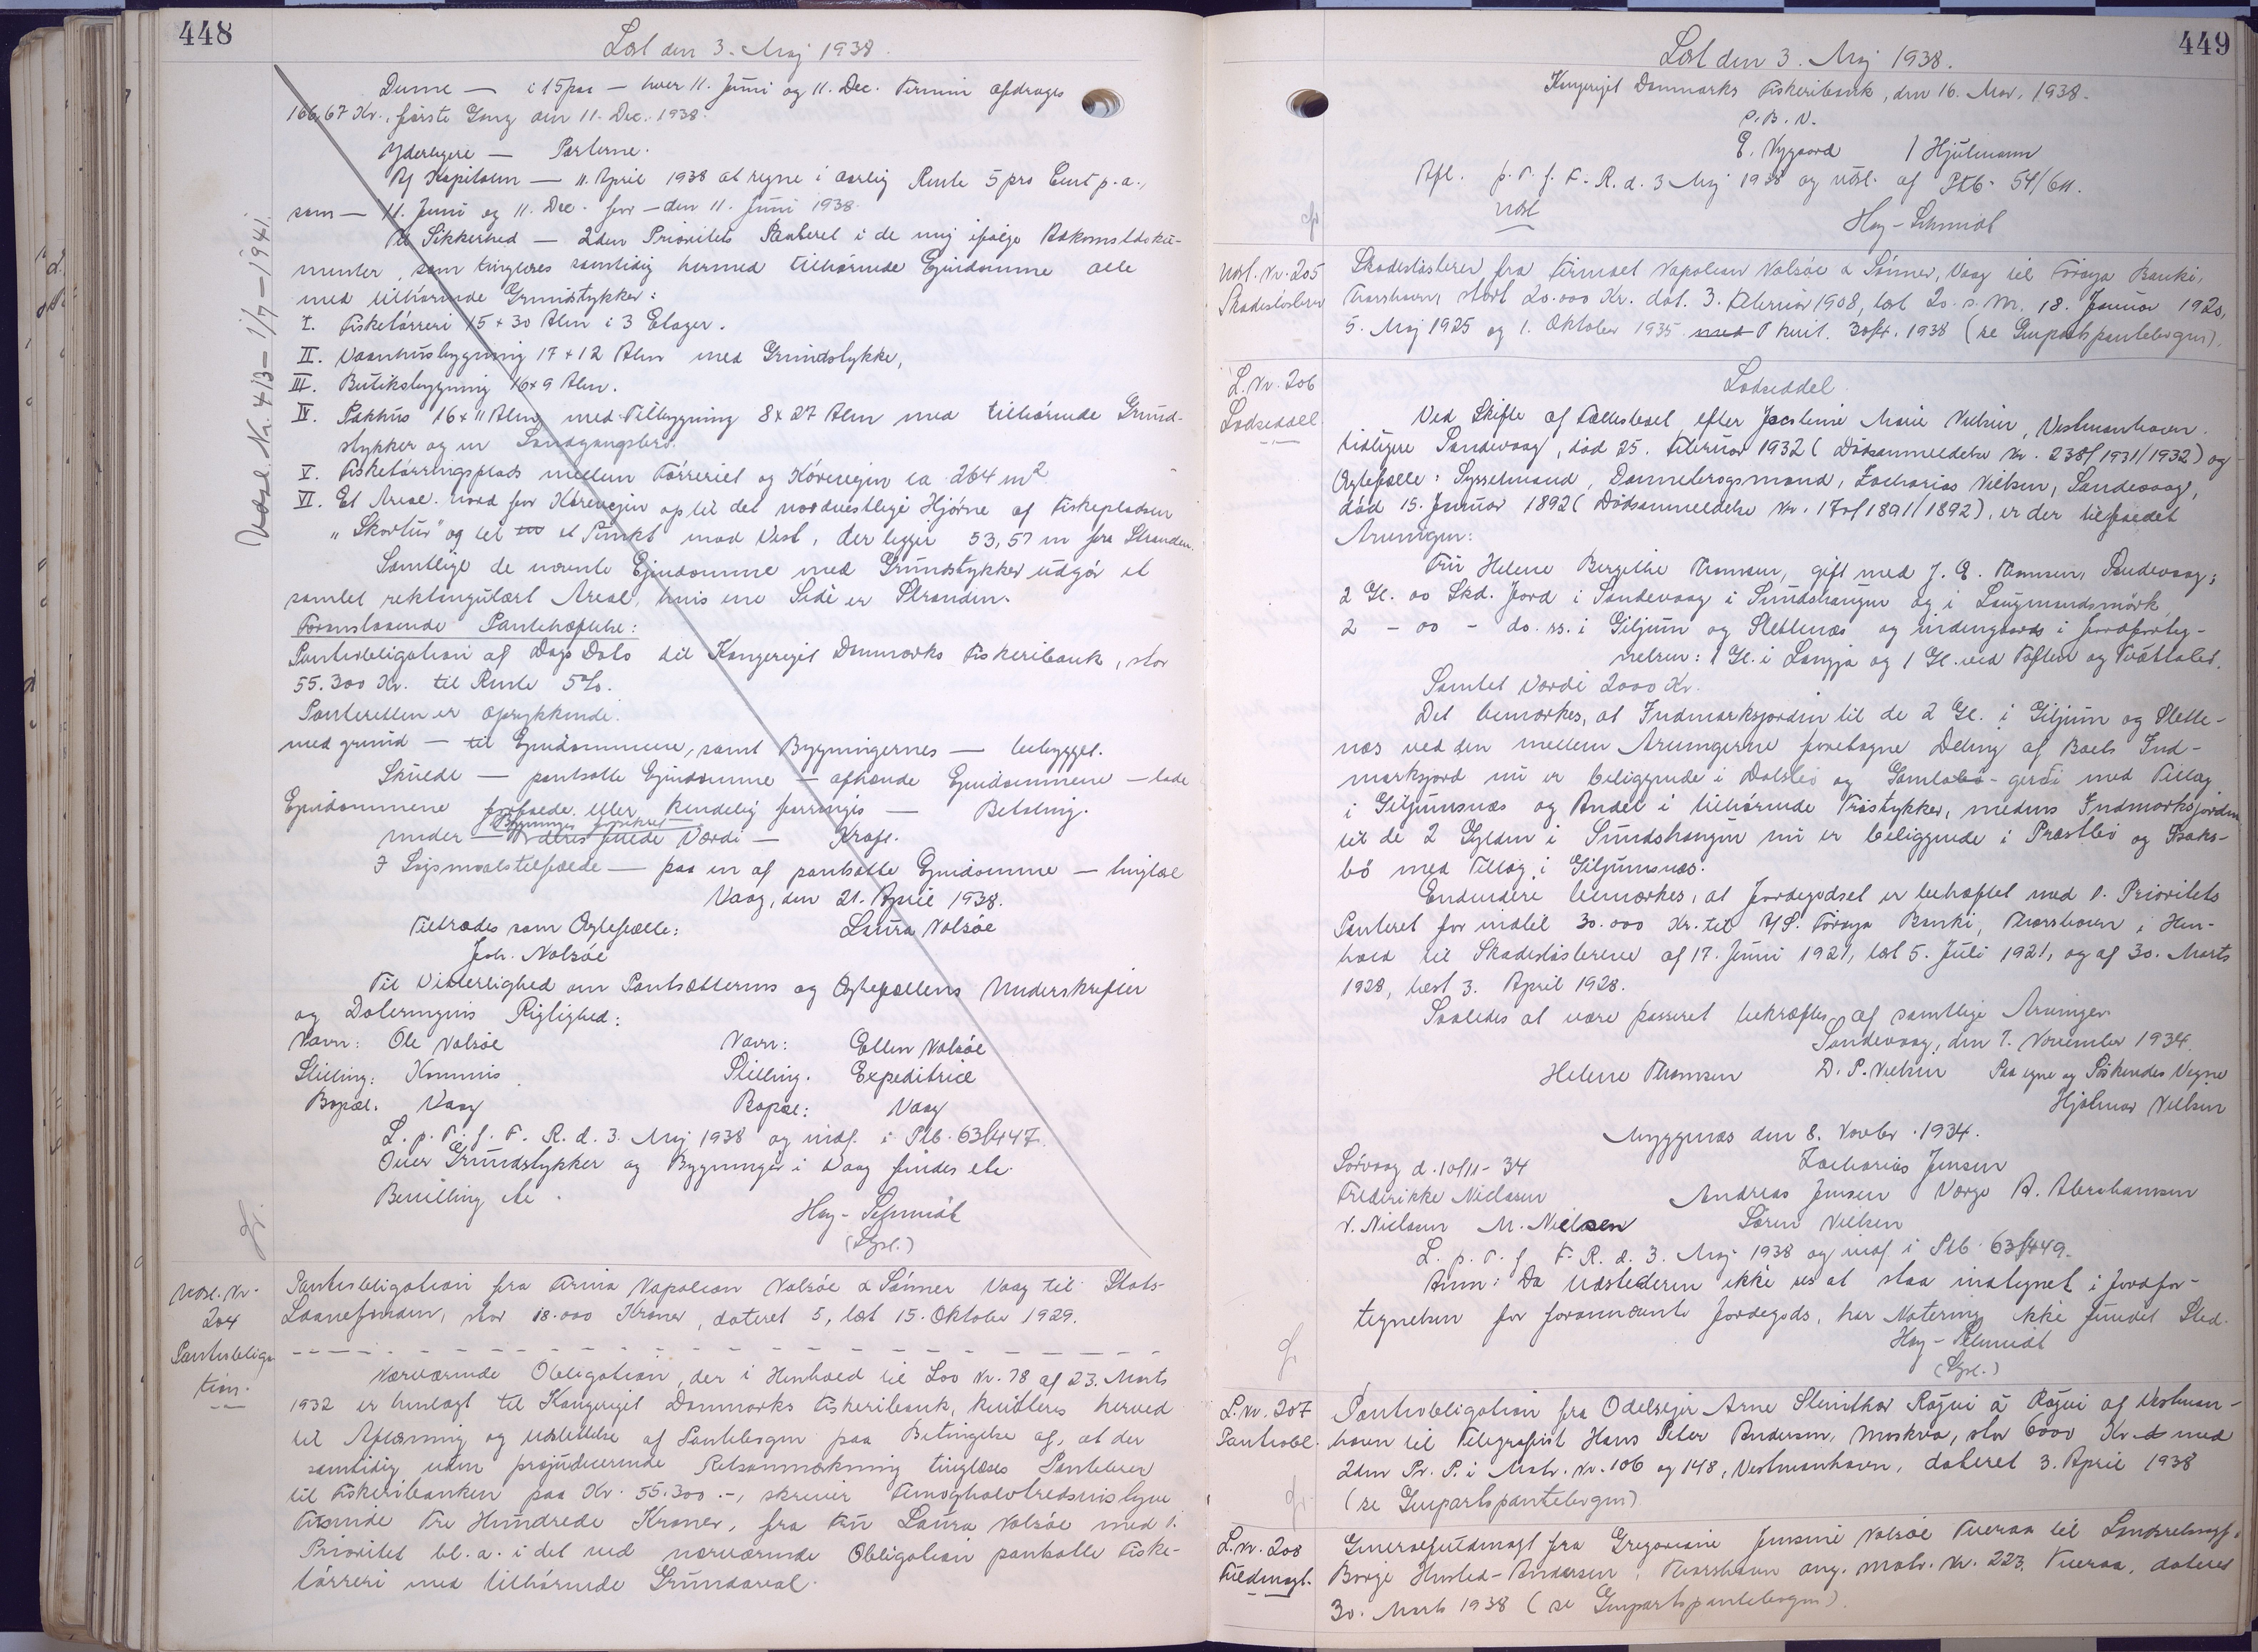 448
Læst den 3. Maj 1938.
Denne — i 15 paa — hver 11. Juni og 11. Dec. Termin afdrages
166,67 Kr., første Gang den 11. Dec. 1938.
Yderligere — Parterne.
Af Kapitalen — 11. April 1938 at regne i aarlig Rente 5 pro Cent p.a.,
som — 11. Juni og 11. Dec. for — den 11. Juni 1938.
Til Sikkerhed — 2den Prioritets Panteret i de mig ifølge Adkomstdoku-
menter, som tinglyses samtidig hermed tilhørende Ejendomme alle
med tilhørende Grundstykker:
I. Fisketørreri 15 x 30 Alen i 3 Etager.
II. Vaanhusbygning 17 x 12 Alen med Grundstykke,
III. Butiksbygning 16 x 9 Alen.
IV. Pakhus 16 x 11 Alen med Tilbygning 8 x 27 Alen med tilhørende Grund-
stykker og en Landgangsbro.
V. Fisketørringsplads mellem Tørreriet og Køreveien ca. 264 m2
VI. Et Areal nord for Køreveien op til det nordvestlige Hjørne af Fiskepladsen
"Skortur" og til et Punkt mod Vest, der ligger 53,57 m fra Stranden.
Samtlige de nævnte Ejendomme med Grundstykker udgør et
samlet rektangulært Areal, hvis ene Side er Stranden.
Foranstaaende Pantehæftelse:
Pantobligation af Dags Dato til Kongeriget Danmarks Fiskeribank, stor
55.300 Kr. til Rente 5%.
Panteretten er oprykkende.
med grund — til Ejendommene, samt Bygningernes — bebygget.
Skulde — pantsatte Ejendomme — afhænde Ejendommene — lade
Ejendommene forfalde eller kendelig forringes — Betaling.
under — deres fulde Værdi — Kraft.
I Søgsmaalstilfælde — paa en af pantsatte Ejendomme — tinglæst
Vaag, den 21. April 1938.
Tiltrædes som Ægtefælle: Laura Nolsøe
Joh. Nolsøe
Til Vitterlighed om Pantsætterens og Ægtefællens Underskrifter
og Dateringens Rigtighed:
Navn: Ole Nolsøe Navn: Ellen Nolsøe
Stilling: Kommis Stilling. Expeditrice
Bopæl. Vaag Bopæl: Vaag
L. p. T. f. F. R. d. 3. Maj 1938 og indf. i Ptb. 63/447.
Over Grundstykker og Bygninger i Vaag findes etc.
Bevilling etc.
Høy-Schmidt
(Lgsl.)
Udsl. Nr. 413 — 1/7 — 1941.
Udsl. Nr.
204
Pantobliga
tion.
Pantobligation fra Firma Napoleon Nolsøe & Sønner Vaag til Stats-
Laanefonden, stor 18.000 Kroner, dateret 5, læst 15. Oktober 1929.
Nærværende Obligation, der i Henhold til Lov Nr. 78 af 23. Marts
1932 er henlagt til Kongeriget Danmarks Fiskeribank, kvitteres herved
til Aflæsning og Udslettelse af Pantebogen paa Betingelse af, at der
samtidig uden præjudicerende Retsanmærkning tinglæses Pantebrev
til Fiskeribanken paa Kr. 55.300.-, skriver Femoghalvtredsindstyve
Tusinde Tre Hundrede Kroner, fra Fru Laura Nolsøe med 1.
Prioritet bl. a. i det ved nærværende Obligation pantsatte Fiske-
tørreri med tilhørende Grundareal.
449
Læst den 3. Maj 1938.
Kongeriget Danmarks Fiskeribank, den 16. Mar. 1938.
P. B. V.
E. Nygaard / Hjulmann
Afl. p. T. f. F. R. d. 3 Maj 1938 og udsl. af Ptb. 54/611.
Udsl
Høy-Schmidt
Udsl. Nr. 205
Skadesløsbrev
Skadesløsbrev fra Firmaet Napoleon Nolsøe & Sønner, Vaag til Føroya Banki,
Thorshavn, stort 20.000 Kr. dat. 3. Februar 1908, læst 20. s. M. 18. Januar 1920,
5. Maj 1925 og 1. Oktober 1935 kvit. 30/4. 1938 (se Genpartspantebogen).
L. Nr. 206
Lodseddel
Lodseddel
Ved Skifte af Fællesboet efter Jacobine Marie Nielsen, Vestmanhavn.
tidligere Sandevaag, død 25. Februar 1932 (Dødsanmeldelse Nr. 238/1931/1932) og
Ægtefælle: Sysselmand, Dannebrogsmand, Zacharias Nielsen, Sandevaag,
død 15. Januar 1892 (Dødsanmeldelse Nr. 17 af 1891/1892), er der tilfaldet
Arvingen:
Fru Helene Bergithe Thomsen, gift med J. E. Thomsen, Sandevaag;
2 Gl. 00 Skd. Jord i Sandevaag i Sundshaugen og i Laugmandsmørk
2 - 00 - do. ss. i Giljum og Slettenæs og indengaards i Jordforteg-
nelsen: 1 Gl. i Langjø og 1 Gl. ved Toften og Tvøttalet.
Samlet Værdi 2000 Kr.
Det bemærkes, at Indmarksjorden til de 2 Gl. i Giljum og Slette-
næs ved den mellem Arvingerne foretagne Deling af Boets Ind-
marksjord nu er beliggende i Dalsbø og Gamlabø-gerði med Tillæg
i Giljumsnæs og Andel i tilhørende Træstykker, medens Indmarksjorden
til de 2 Gylden i Sundshaugen nu er beliggende i Præstbø og Isaks-
bø med Tillæg i Giljumsnæs.
Endvidere bemærkes, at Jordegodset er behæftet med 1. Prioritets
Panteret for indtil 30.000 Kr. til A/S. Føroya Banki, Thorshavn i Hen-
hold til Skadesløsbreve af 17. Juni 1921, læst 5. Juli 1921, og af 30. Marts
1928, læst 3. April 1928.
Saaledes at være passeret bekræftes af samtlige Arvinger.
Sandevaag, den 7. November 1934.
Helene Thomsen D. P. Nielsen Paa egne og Søskendes Vegne
Hjalmar Nielsen
Myggenæs den 8. Novbr. 1934.
Sørvaag d. 10/11-34 Zacharias Jensen
Frederikke Nielsen Andreas Jensen Værge A. Abrahamsen
N. Nielsen M. Nielsen Søren Nielsen
L. p. T. f. F. R. d. 3. Maj 1938 og indf. i Ptb. 63/449.
Anm: Da Udstederen ikke ses at staa indtegnet i Jordfor-
tegnelsen for forannævnte Jordegods, har Notering ikke fundet Sted.
Høy-Schmidt
(Lgsl.)
L. Nr. 207
Pantobl.
Pantobligation fra Odelsejer Arne Steinthor Røgvi á Røgvi af Vestman-
havn til Telegrafist Hans Peter Andersen, Moskva, stor 6000 Kr. med
2den Pr. P. i Matr. Nr. 106 og 148, Vestmanhavn, dateret 3. April 1938
(se Genpartspantebogen)
L. Nr. 208
Fuldmagt.
Generalfuldmagt fra Gregoriane Jensine Nolsøe Tveraa til Landsretssagf.
Børge Husted-Andersen, Thorshavn ang. Matr. Nr. 223, Tveraa, dateret
30. Marts 1938 (se Genpartspantebogen).